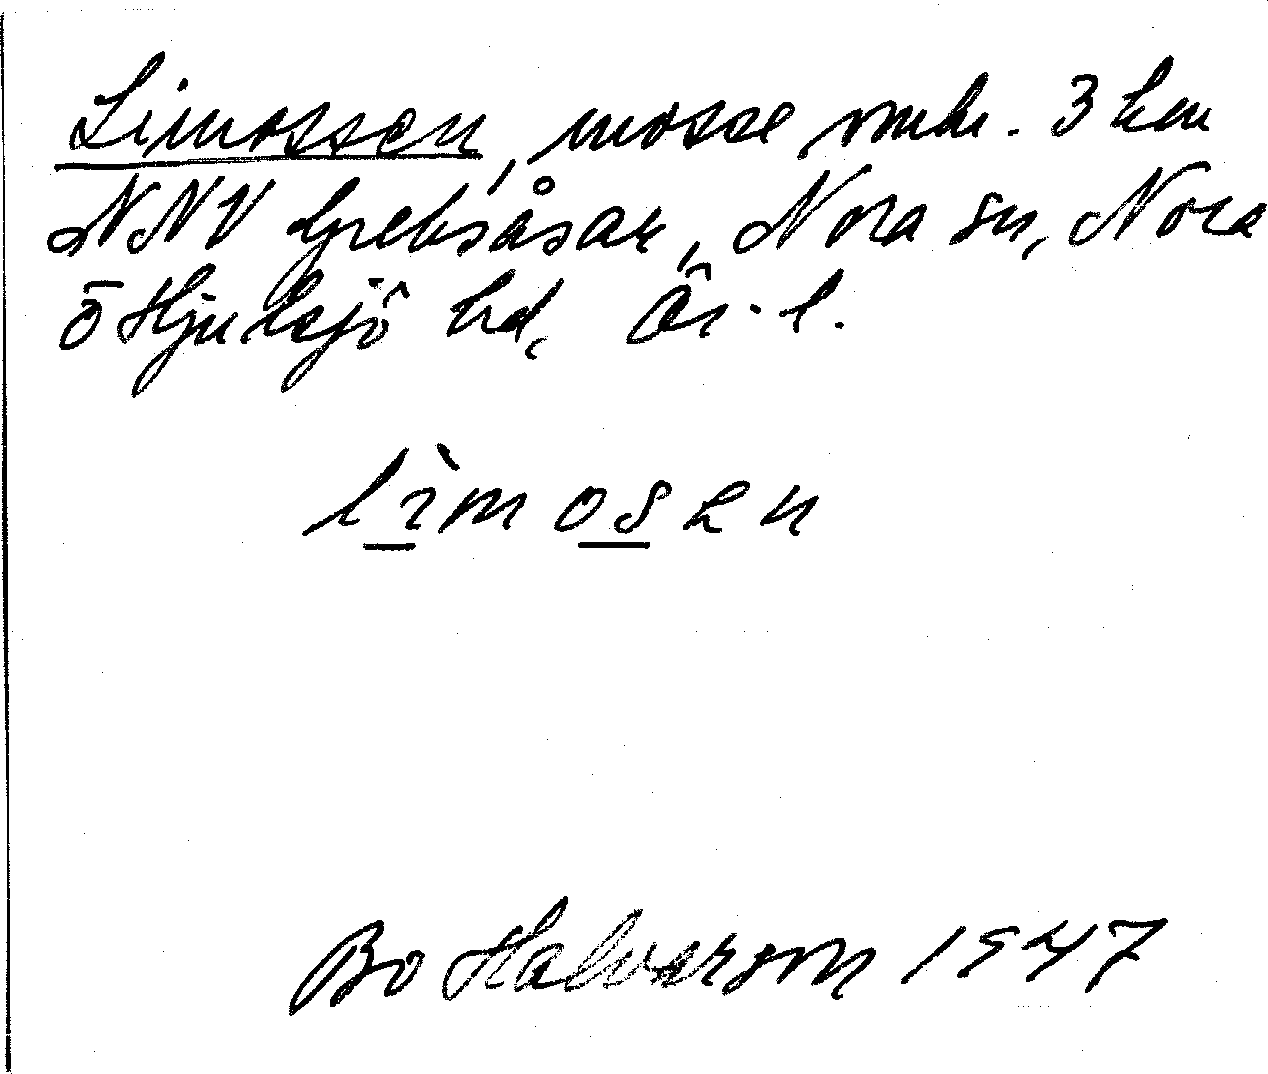 Limossen, mosse omkr. 3 km
NNV Grecksåsar, Nora sn, Nora
o Hjulsjö hd, Ör. l.
lìmosen
Bo Halvarson 1947